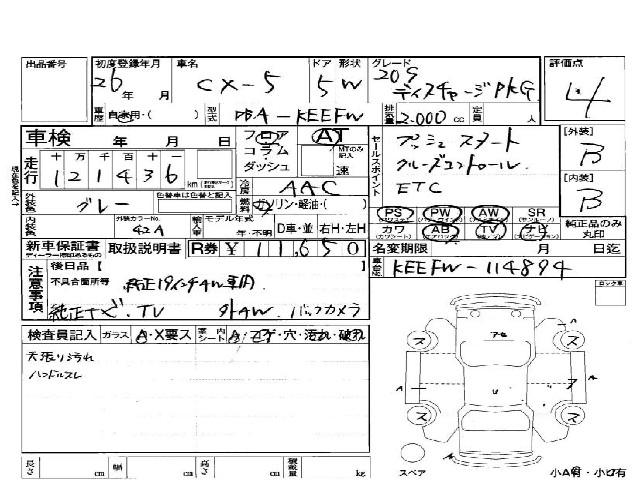 出品番号 初度登録年月 車名 ドア 形状 グレード 評価点
26 年 月 CX-5 5 W 20S ディスチャージPKG 4
車歴 自家用・( ) 型式 DBA-KEEFW 排気量 2.000 cc 定員 人
車検 年 月 日 フロア コラム ダッシュ AT MTのみ記入 速
セールスポイント プッシュスタート
クルーズコントロール
ETC
[外装] B
[内装] B
走行 十 万 千 百 十 一
1 2 1 4 3 6 km
冷房 AAC
外装色 グレー 色替車は色替と記入 燃料 ガソリン・軽油・( )
内装色 外装カラーNo. 42A 輸入車 モデル年式 年・不明 D車・並 右H・左H
PS PW AW SR
カワ AB TV ナビ
純正品のみ丸印
新車保証書 取扱説明書 R券 ¥ 11,650
名変期限 月 日迄
車台No. KEEFW-114894
注意事項 後日品【 】
不具合箇所等 純正19インチAW専用
純正ナビ.TV 外AW. バックカメラ
ロック車
検査員記入 ガラス A・X要ス 室内 シート A・コゲ・穴・汚れ・破れ
天張り汚れ
ハンドルスレ
ス ス
A A
ス ス
スペア 小A有・小U有
長さ cm 幅 cm 高さ cm 積載量 kg